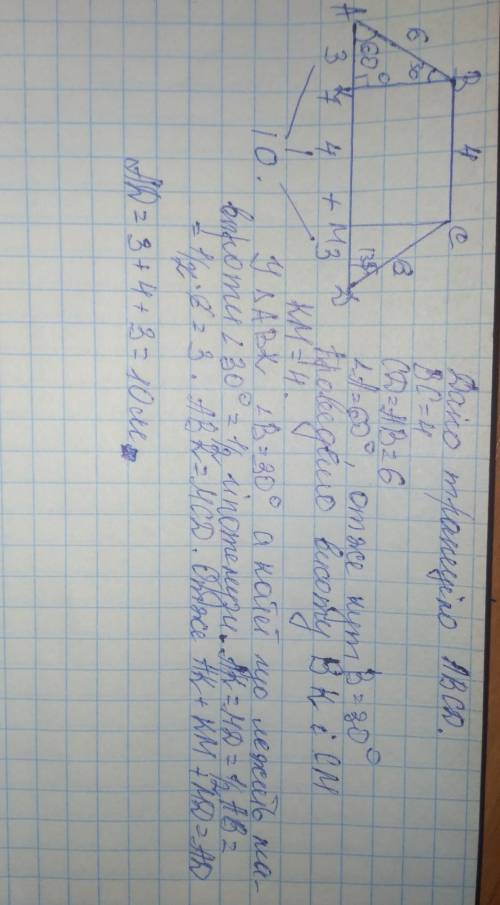 A 6 B 4 C
60° 30
3 K 4 + M 3
6
10.
Дано трапецію ABCD.
BC=4
CD=AB=6
∠A=60°, отже кут B=30°
Проведемо висоту BK і CM
KM=4.
У ∆ABK ∠B=30° а катет що лежить на-
впроти ∠30° = 1/2 гіпотенузи. AK=MD=1/2 AB=
=1/2·6=3. ABK=MCD. Отже AK+KM+MD=AD
AD=3+4+3=10см.